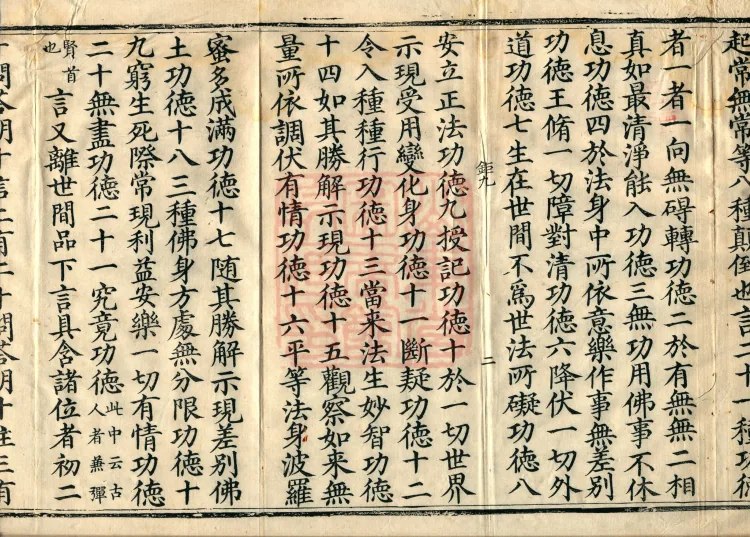 起常無常等八種顛倒也言二十一種功德
者一者一向無碍轉功德二於有無無二相
真如最清淨能入功德三無功用佛事不休
息功德四於法身中所依意樂作事無差別
功德王脩一切障對清功德六降伏一切外
道功德七生在世間不為世法所礙功德八
鉅九
二
安立正法功德九授記功德十於一切世界
示現受用變化身功德十一斷疑功德十二
令入種種行功德十三當来法生妙智功德
十四如其勝解示現功德十五觀察如来無
量所依調伏有情功德十六平等法身波羅
蜜多成滿功德十七随其勝解示現差別佛
土功德十八三種佛身方處無分限功德十
九窮生死際常現利益安樂一切有情功德
二十無盡功德二十一究竟功德此中云古人者兼彈
賢首也言又離世間品下言具含諸位者初二
十問答明十信二有二十問答明十住三有